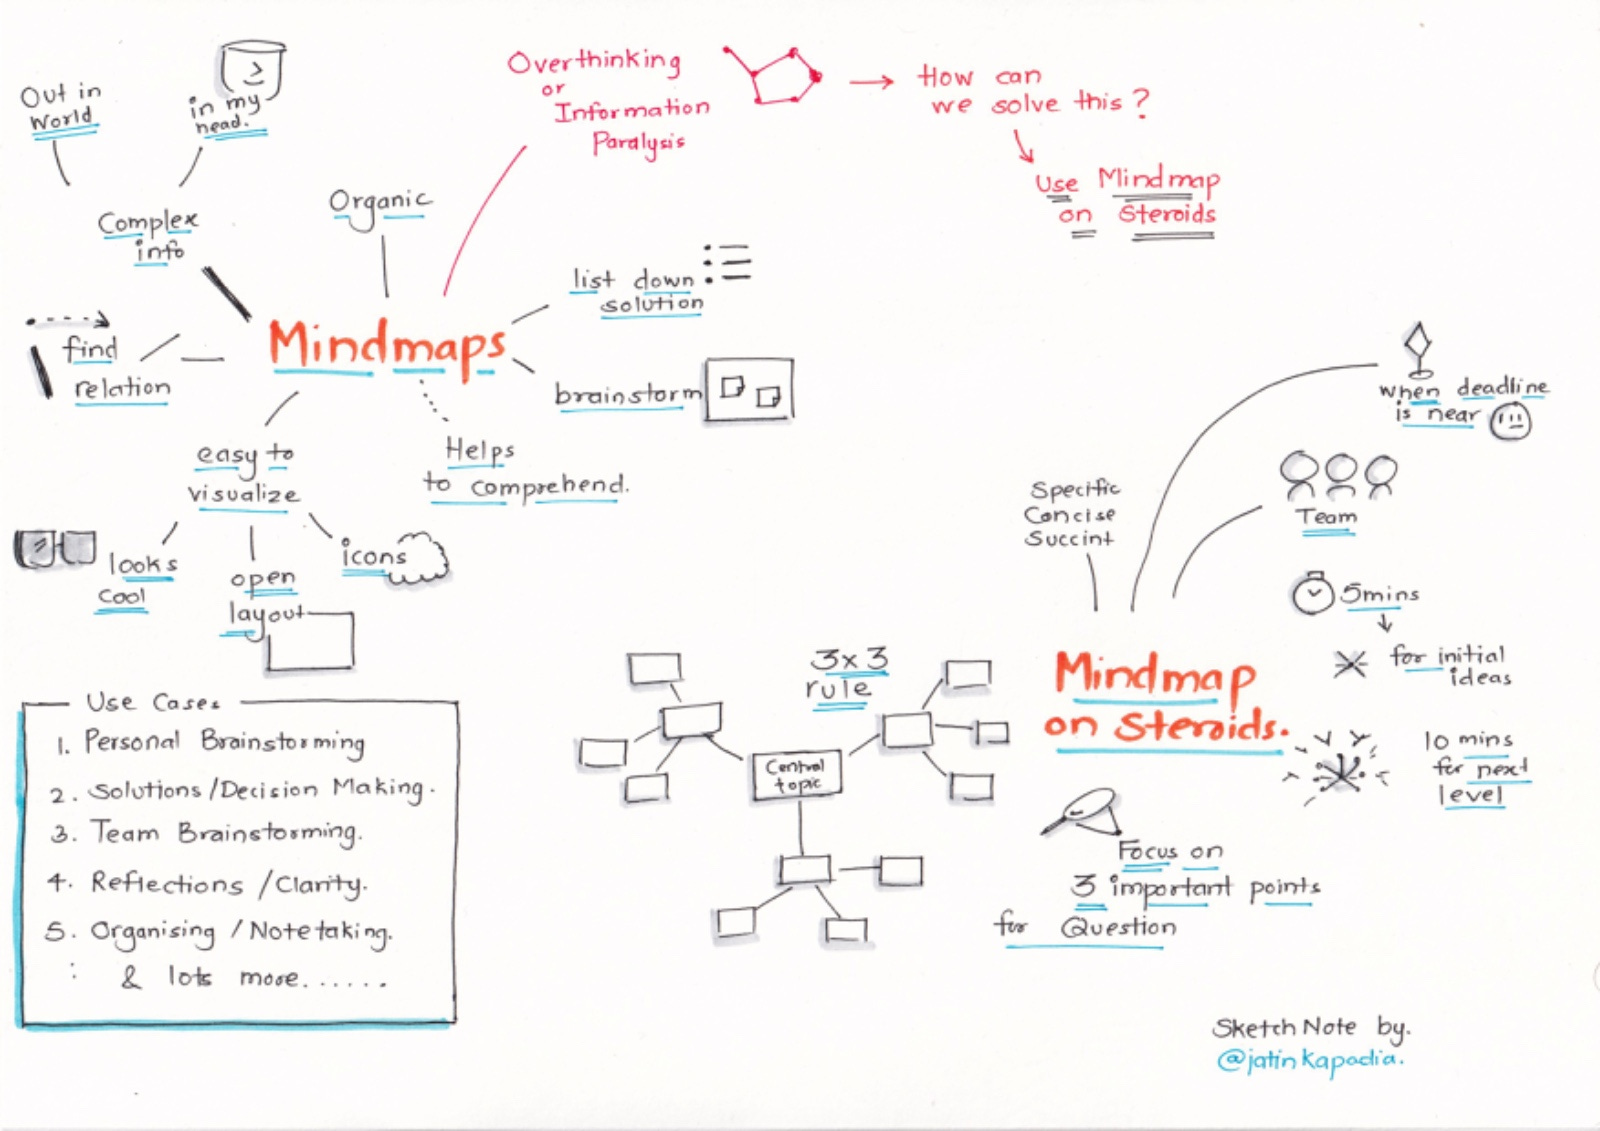 Out in
World
in my
head.
Complex
info
Organic
Overthinking
or
Information
Paralysis
How can
we solve this?
Use Mindmap
on Steroids
find
relation
Mindmaps
list down
solution
brainstorm
easy to
visualize
Helps
to comprehend.
looks
cool
open
layout
icons
Use Cases
1. Personal Brainstorming
2. Solutions/Decision Making.
3. Team Brainstorming.
4. Reflections/Clarity.
5. Organising/Notetaking.
& lots more......
3x3
rule
Central
topic
Specific
Concise
Succint
when deadline
is near
Team
5mins
for initial
ideas
Mindmap
on Steroids.
10 mins
for next
level
Focus on
3 important points
for Question
SketchNote by.
@jatinkapadia.